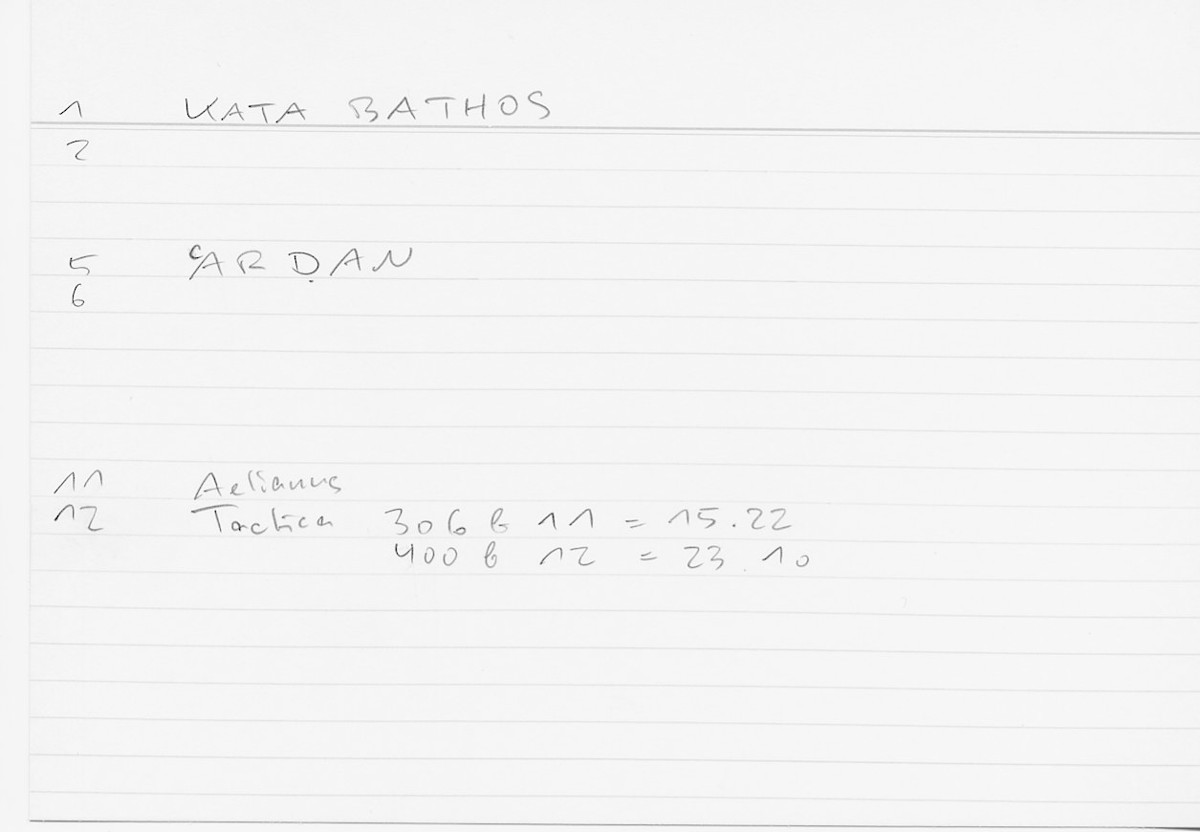 1 KATA BATHOS
2
5 CARDAN
6
11 Aelianus
12 Tactica 306 b 11 = 15.22
400 b 12 = 23.10